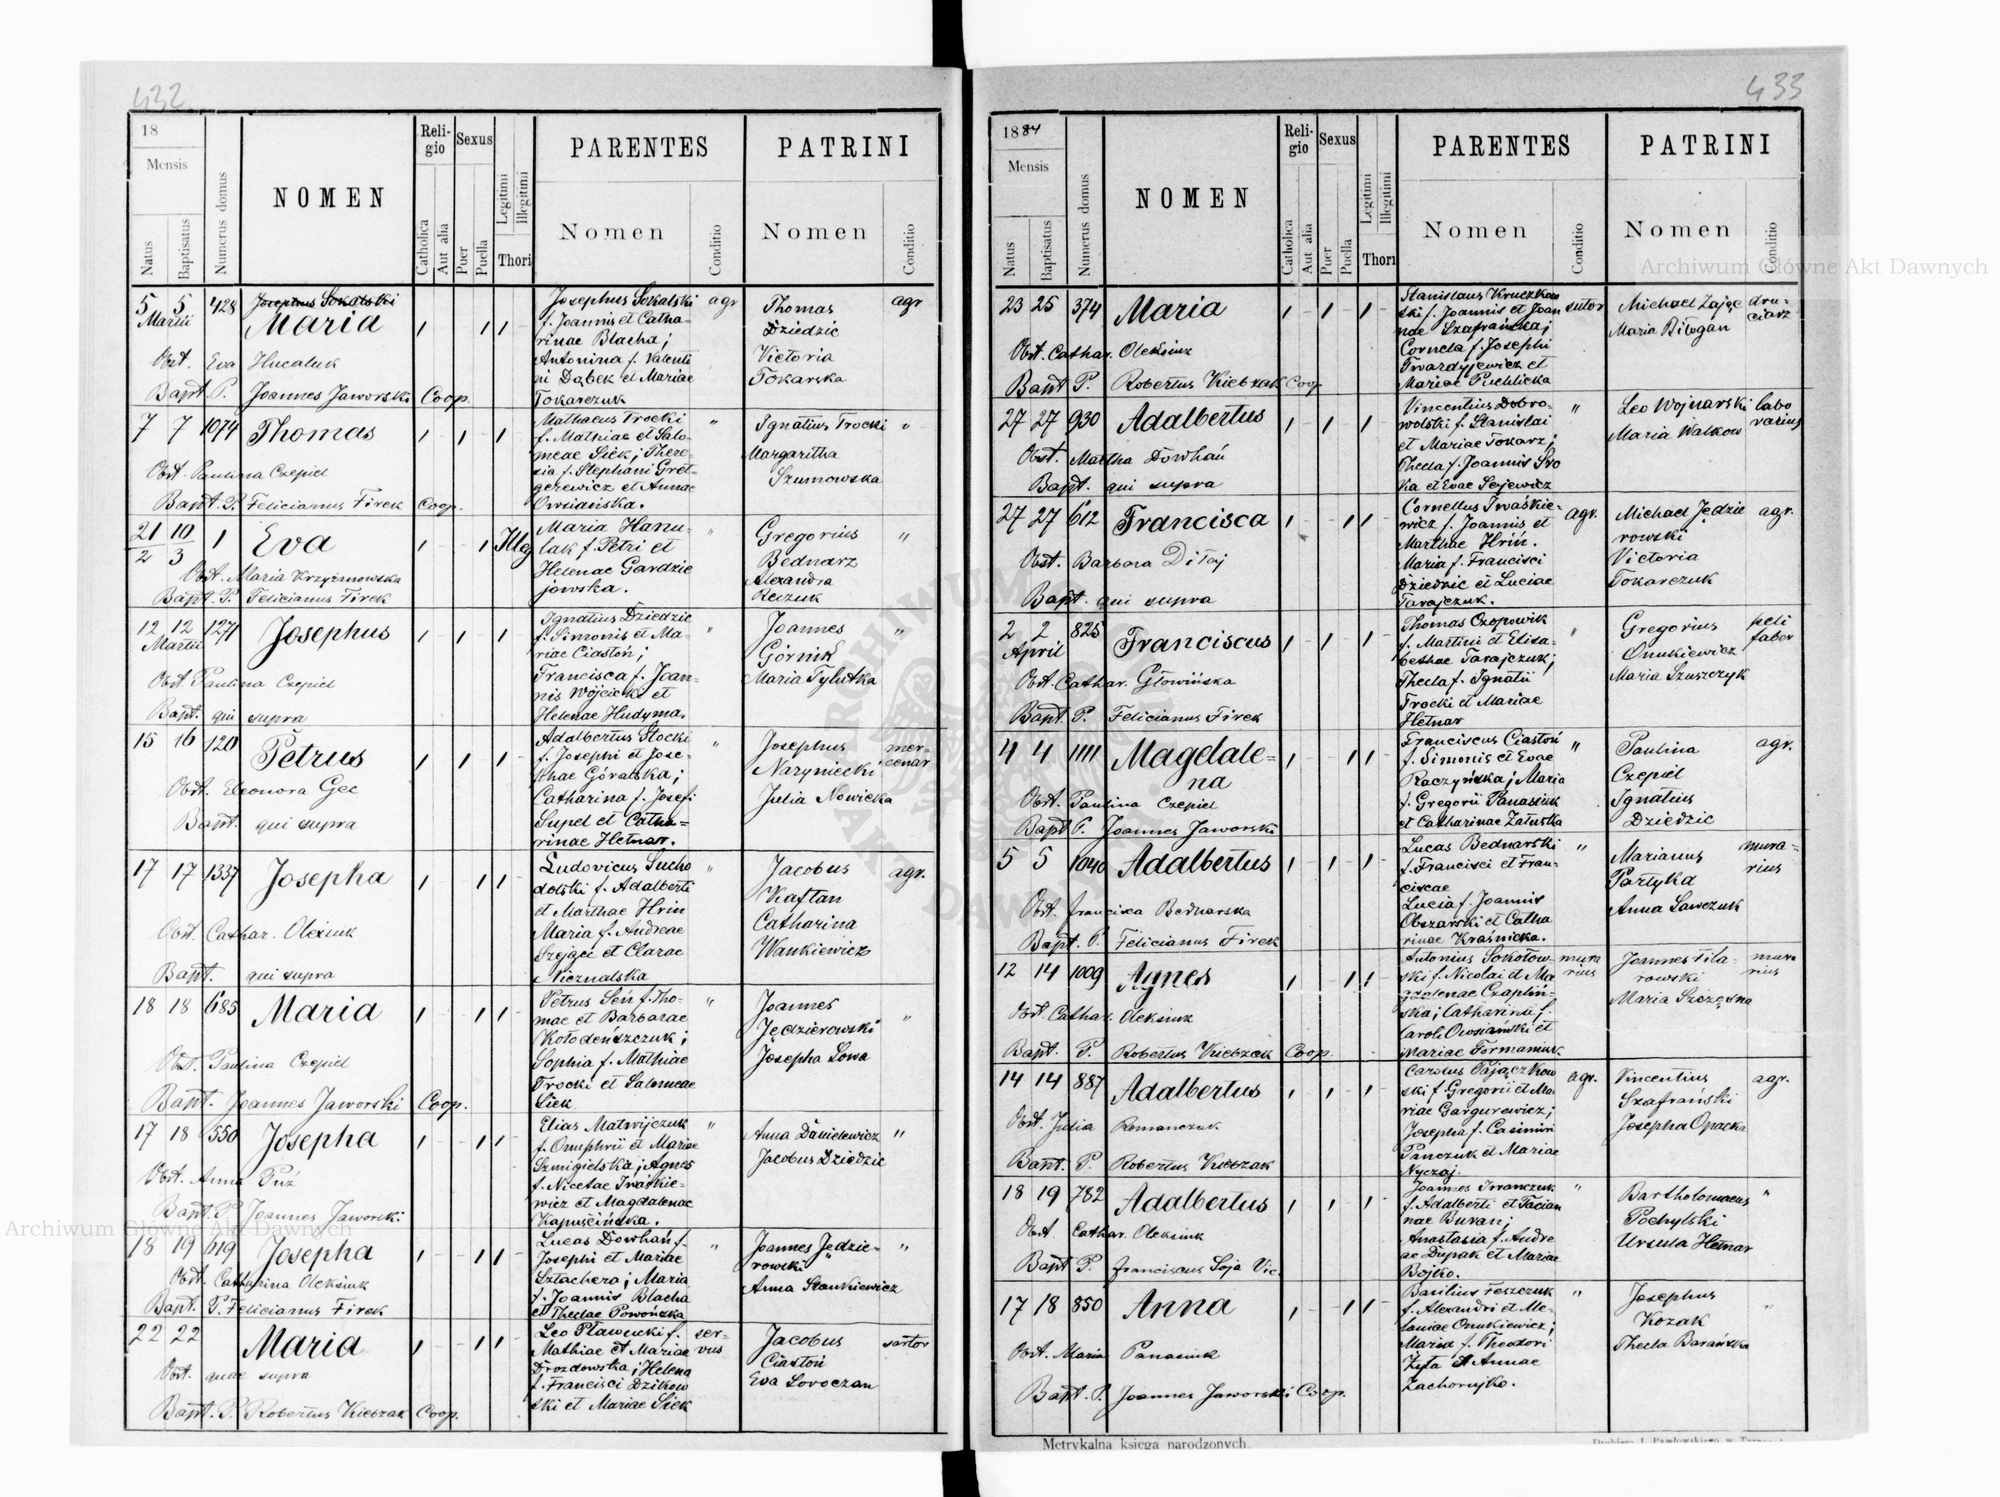 432
18
Mensis
Natus
Baptisatus
Numerus domus
NOMEN
Reli-
gio
Catholica
Aut alia
Sexus
Puer
Puella
Legitimi
Illegitimi
Thori
PARENTES
Nomen
Conditio
PATRINI
Nomen
Conditio
5 5 428 Josephus Sokalski
Martii
Maria
Obst. Eva Hucaluk
Bapt. P. Joannes Jaworski Coop.
Josephus Sokalski agr
f. Joannis et Catha-
rinae Blacha;
Antonina f. Valenti
ni Dąbek et Mariae
Tokarczuk
Thomas agr
Dziedzic
Victoria
Tokarska
7 7 1074 Thomas
Obst. Paulina Czepiel
Bapt. P. Felicianus Firek Coop.
Mathaeus Trocki "
f. Mathiae et Salo-
meae Siek; There-
sia f. Stephani Gret-
gerewicz et Annae
Owsiańska.
Ignatius Trocki "
Margaritha
Szumowska
21/2 10/3 1 Eva Illeg
Obst. Maria Krzyżanowska
Bapt. P. Felicianus Firek
Maria Hanu- "
lak f. Petri et
Helenae Gardzie
jowska.
Gregorius "
Bednarz
Alexandra
Reczuk
12 12 1271 Josephus
Martii
Obst. Paulina Czepiel
Bapt. qui supra
Ignatius Dziedzic
f. Simonis et Ma- "
riae Ciastoń;
Francisca f. Joan-
nis Wójcicki et
Helenae Hudyma.
Joannes "
Górnik
Maria Tylutka
15 16 120 Petrus
Obst. Eleonora Gec
Bapt. qui supra
Adalbertus Stocki "
f. Josephi et Jose-
phae Góralska;
Catharina f. Josefi
Supel et Catha=
rinae Hetnar.
Josephus mer-
Naryniecki cenar
Julia Nowicka
17 17 1337 Josepha
Obst. Cathar. Olexiuk
Bapt. qui supra
Ludovicus Sucho "
dolski f. Adalberti
et Marthae Hrin
Maria f. Andreae
Szejgei et Clarae
Nieznalska
Jacobus agr.
Kaftan
Catharina
Wankiewicz
18 18 685 Maria
Obst. Paulina Czepiel
Bapt. Joannes Jaworski Coop.
Petrus Seń f. Tho- "
mae et Barbarae
Kołodeńszczuk;
Sophia f. Mathiae
Trocki et Salomeae
Siek
Joannes
Jędzierowski "
Josepha Sowa
17 18 550 Josepha
Obst. Anna Puź
Bapt. P. Joannes Jaworski
Elias Matwijczuk "
f. Onuphrii et Mariae
Szmigielska; Agnes
f. Nicetae Iwaśkie-
wicz et Magdalenae
Kapuścińska.
Anna Danielewicz "
Jacobus Dziedzic
18 19 619 Josepha
Obst. Catharina Oleksiuk
Bapt. P. Felicianus Firek
Lucas Dowhań f. "
Josephi et Mariae
Sztachera; Maria
f. Joannis Blacha
et Theclae Powońska
Joannes Jędzie- "
rowski
Anna Stankiewicz
22 22 Maria
Obst. quae supra
Bapt. P. Robertus Kiebzak Coop.
Leo Pławucki f. ser-
Mathiae et Mariae vus
Drozdowska; Helena
f. Francisci Dzikow
ski et Mariae Siek
Jacobus sartor
Ciastoń
Eva Soroczan
433
1884
Mensis
Natus
Baptisatus
Numerus domus
NOMEN
Reli-
gio
Catholica
Aut alia
Sexus
Puer
Puella
Legitimi
Illegitimi
Thori
PARENTES
Nomen
Conditio
PATRINI
Nomen
Conditio
23 25 374 Maria
Obst. Cathar. Oleksiuk
Bapt P. Robertus Kiebzak Coop.
Stanislaus Kruczkow
ski f. Joannis et Joan sutor
nae Szafrańska;
Cornela f. Josephi
Twardyjewicz et
Mariae Puchlicka
Michael Zając dru-
Maria Biłogan ciarz
27 27 930 Adalbertus
Obst. Martha Dowhań
Bapt. qui supra
Vincentius Dobro- "
wolski f. Stanislai
et Mariae Tokarz;
Thecla f. Joannis Sro
ka et Evae Sejewicz
Leo Wojnarski labo
Maria Walkow rarius
27 27 612 Francisca
Obst. Barbara Diłaj
Bapt. qui supra
Cornelius Iwaśkie- agr.
wicz f. Joannis et
Marthae Hriń.
Maria f. Francisci
Dziedzic et Luciae
Tarajczuk.
Michael Jędzie agr.
rowski
Victoria
Tokarczuk
2 2 825 Franciscus
April
Obst. Cathar. Głowińska
Bapt. P. Felicianus Firek
Thomas Czopowik "
f. Martini et Elisa-
bethae Tarajczuk;
Thecla f. Ignatii
Trocki et Mariae
Hetnar
Gregorius peli
Onukiewicz faber
Maria Szuszczyk
4 4 1111 Magdale=
na
Obst. Paulina Czepiel
Bapt P. Joannes Jaworski
Franciscus Ciastoń "
f. Simonis et Evae
Raczyńska; Maria
f. Gregorii Panasiuk
et Catharinae Załuska
Paulina agr.
Czepiel
Ignatius
Dziedzic
5 5 1040 Adalbertus
Obst. Francisca Bednarska
Bapt. P. Felicianus Firek
Lucas Bednarski "
f. Francisci et Fran-
ciscae
Lucia f. Joannis
Obszarski et Catha
rinae Kraśnicka.
Marianus mura-
Partyka rius
Anna Sawczuk
12 14 1009 Agnes
Obst. Cathar. Oleksiuk
Bapt. P. Robertus Kiebzak Coop.
Antonius Sokołow- mura
ski f. Nicolai et Ma rius
gdalenae Czapliń-
ska; Catharina f.
Caroli Owsiański et
Mariae Formaniuk
Joannes Fila- mura
rowski rius
Maria Szczęsna
14 14 887 Adalbertus
Obst. Julia Romanczuk
Bapt. P. Robertus Kiebzak
Carolus Pajączkow agr.
ski f. Gregorii et Ma-
riae Gargurewicz;
Josepha f. Casimiri
Panczuk et Mariae
Nyczaj.
Vincentius agr.
Szafrański
Josepha Opacka
18 19 782 Adalbertus
Obst Cathar. Oleksiuk
Bapt P. Franciscus Soja Vic.
Joannes Iwanczuk "
f. Adalberti et Tacian
nae Buran;
Anastasia f. Andre
ae Dupak et Mariae
Bojko.
Bartholomaeus "
Pochylski
Ursula Hetnar
17 18 850 Anna
Obst. Maria Panasiuk
Bapt. P. Joannes Jaworski Coop.
Basilius Feszczuk "
f. Alexandri et Me-
laniae Onukiewicz;
Maria f. Theodori
Żyła et Annae
Zachorujko.
Josephus
Kozak "
Thecla Barańska
Metrykalna księga narodzonych.
Archiwum Główne Akt Dawnych
Archiwum Główne Akt Dawnych
ARCHIWUM GŁÓWNE AKT DAWNYCH